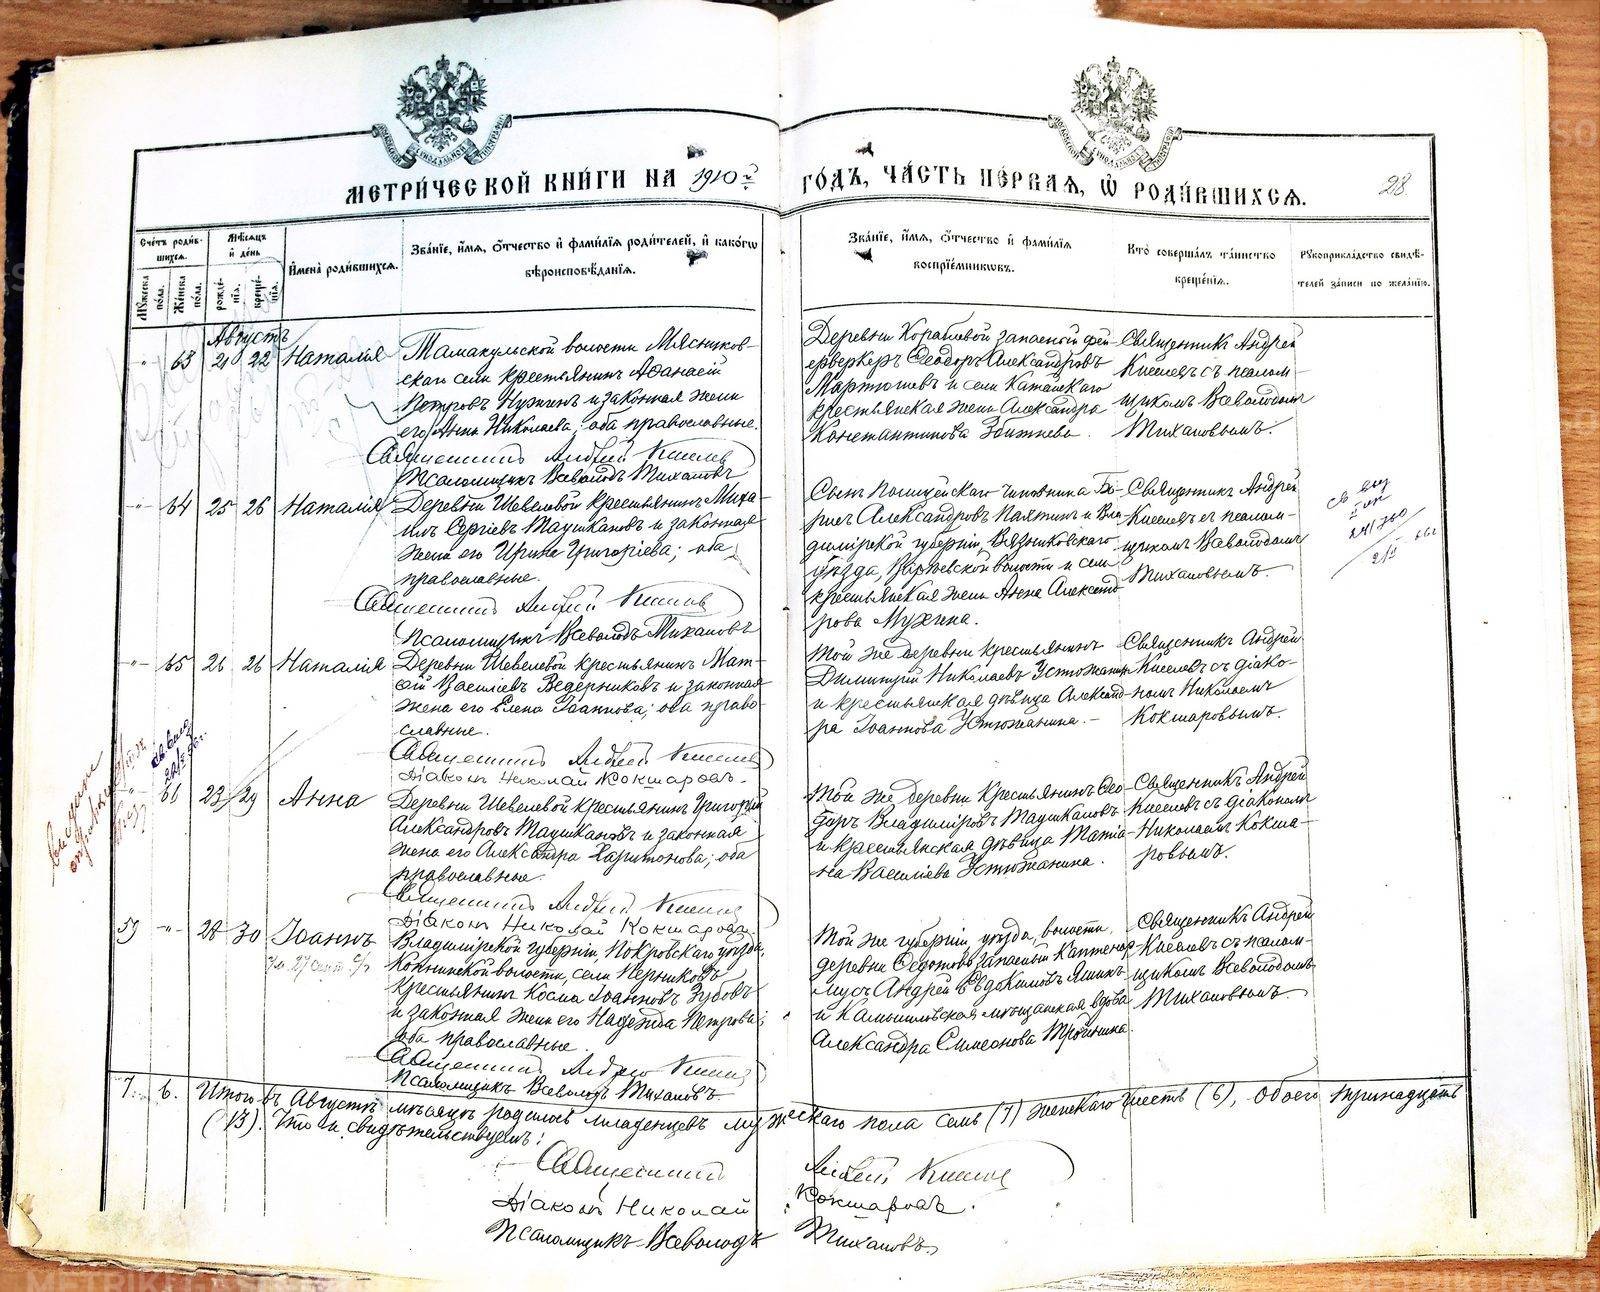 МЕТРИ́ЧЕСКОЙ КНИ́ГИ НА 1910й ГО́ДЪ, ЧА́СТЬ ПЕ́РВАЯ, Ѿ РОДИ́ВШИХСЯ.
28
Сче́тъ роди́в-
шихся.
Мѣ́сяцъ
и́ день
И́мена роди́вшихся.
Зва́нїе, и́мя, ѻ́тчество и́ фами́лїя роди́телей, и́ како́гѡ
вѣроисповѣ́данїя.
Мꙋ́жеска
по́ла.
Же́нска
по́ла.
рожде́-
нїя.
креще́-
нїя.
Зва́нїе, и́мя, ѻ́тчество и́ фами́лїя
воспрїе́мниковъ.
Кто̀ соверша́лъ та́инство
креще́нїя.
Рꙋкоприкла́дство свидѣ́-
телей за́писи по жела́нїю.
Августъ
-"- 63 21 22 Наталія
Тамакульской волости Мясников-
скаго села крестьянинъ Аѳанасій
Петровъ и законная жена
его Анна Николаева, оба православные.
Священникъ Андрей Киселев
Псаломщикъ Всеволодъ Тихановъ
Деревни запасной фей-
ерверкеръ Ѳеодоръ Александровъ
Мартюшевъ и села Катайскаго
крестьянская жена Александра
Константинова
Священникъ Андрей
Киселевъ съ псалом-
щикомъ Всеволодомъ
Тихановымъ.
-"- 64 25 26 Наталія
Деревни Шевелевой крестьянинъ Миха-
илъ Сергіевъ Таушкановъ и законная
жена его Ирина Григоріева; оба
православные.
Священникъ Андрей Киселев
Псаломщикъ Всеволодъ Тихановъ
Сынъ полицейскаго чиновника Бо-
рисъ Александровъ Пляткинъ и Вла-
димірской губерніи, Вязниковскаго
уѣзда, волости и села
крестьянская жена Анна Александ-
рова Мухина.
Священникъ Андрей
Киселевъ съ псалом-
щикомъ Всеволодомъ
Тихановымъ.
-"- 65 26 26 Наталія
Деревни Шевелевой крестьянинъ Мат-
ѳій Василіевъ Ведерниковъ и законная
жена его Елена Іоаннова; оба право-
славные.
Священникъ Андрей Киселев
Діаконъ Николай Кокшаровъ.
Той же деревни крестьянинъ
Димитрій Николаевъ Устюжанинъ
и крестьянская дѣвица Александ-
ра Іоаннова Устюжанина. -
Священникъ Андрей
Киселевъ съ діако-
номъ Николаемъ
Кокшаровымъ.
-"- 66 23 29 Анна
Деревни Шевелевой крестьянинъ Григорій
Александровъ Таушкановъ и законная
жена его Александра Харитонова; оба
православные.
Священникъ Андрей Киселев
Діаконъ Николай Кокшаровъ.
Той же деревни крестьянинъ Ѳео-
доръ Владиміровъ Таушкановъ
и крестьянская дѣвица Татіа-
на Василіева Устюжанина.
Священникъ Андрей
Киселевъ съ діакономъ
Николаемъ Кокша-
ровымъ.
59 -"- 28 30 Іоаннъ
Владимірской губерніи, Покровскаго уѣзда,
волости, села
крестьянинъ Косма Іоанновъ Зубовъ
и законная жена его Надежда Петрова;
оба православные.
Священникъ Андрей Киселев
Псаломщикъ Всеволодъ Тихановъ
Той же губерніи, уѣзда, волости,
деревни Ѳедотово запасный каптенар-
мусъ Андрей Евдокимовъ
и Камышловская мѣщанская вдова
Александра Симеонова
Священникъ Андрей
Киселевъ съ псалом-
щикомъ Всеволодомъ
Тихановымъ.
7. 6. Итого въ Августѣ мѣсяцѣ родилось младенцевъ мужескаго пола семь (7) женскаго шесть (6), обоего тринадцать
(13). Что и свидѣтельствуемъ:
Священникъ Андрей Киселев
Діаконъ Николай Кокшаровъ.
Псаломщикъ Всеволодъ Тихановъ.